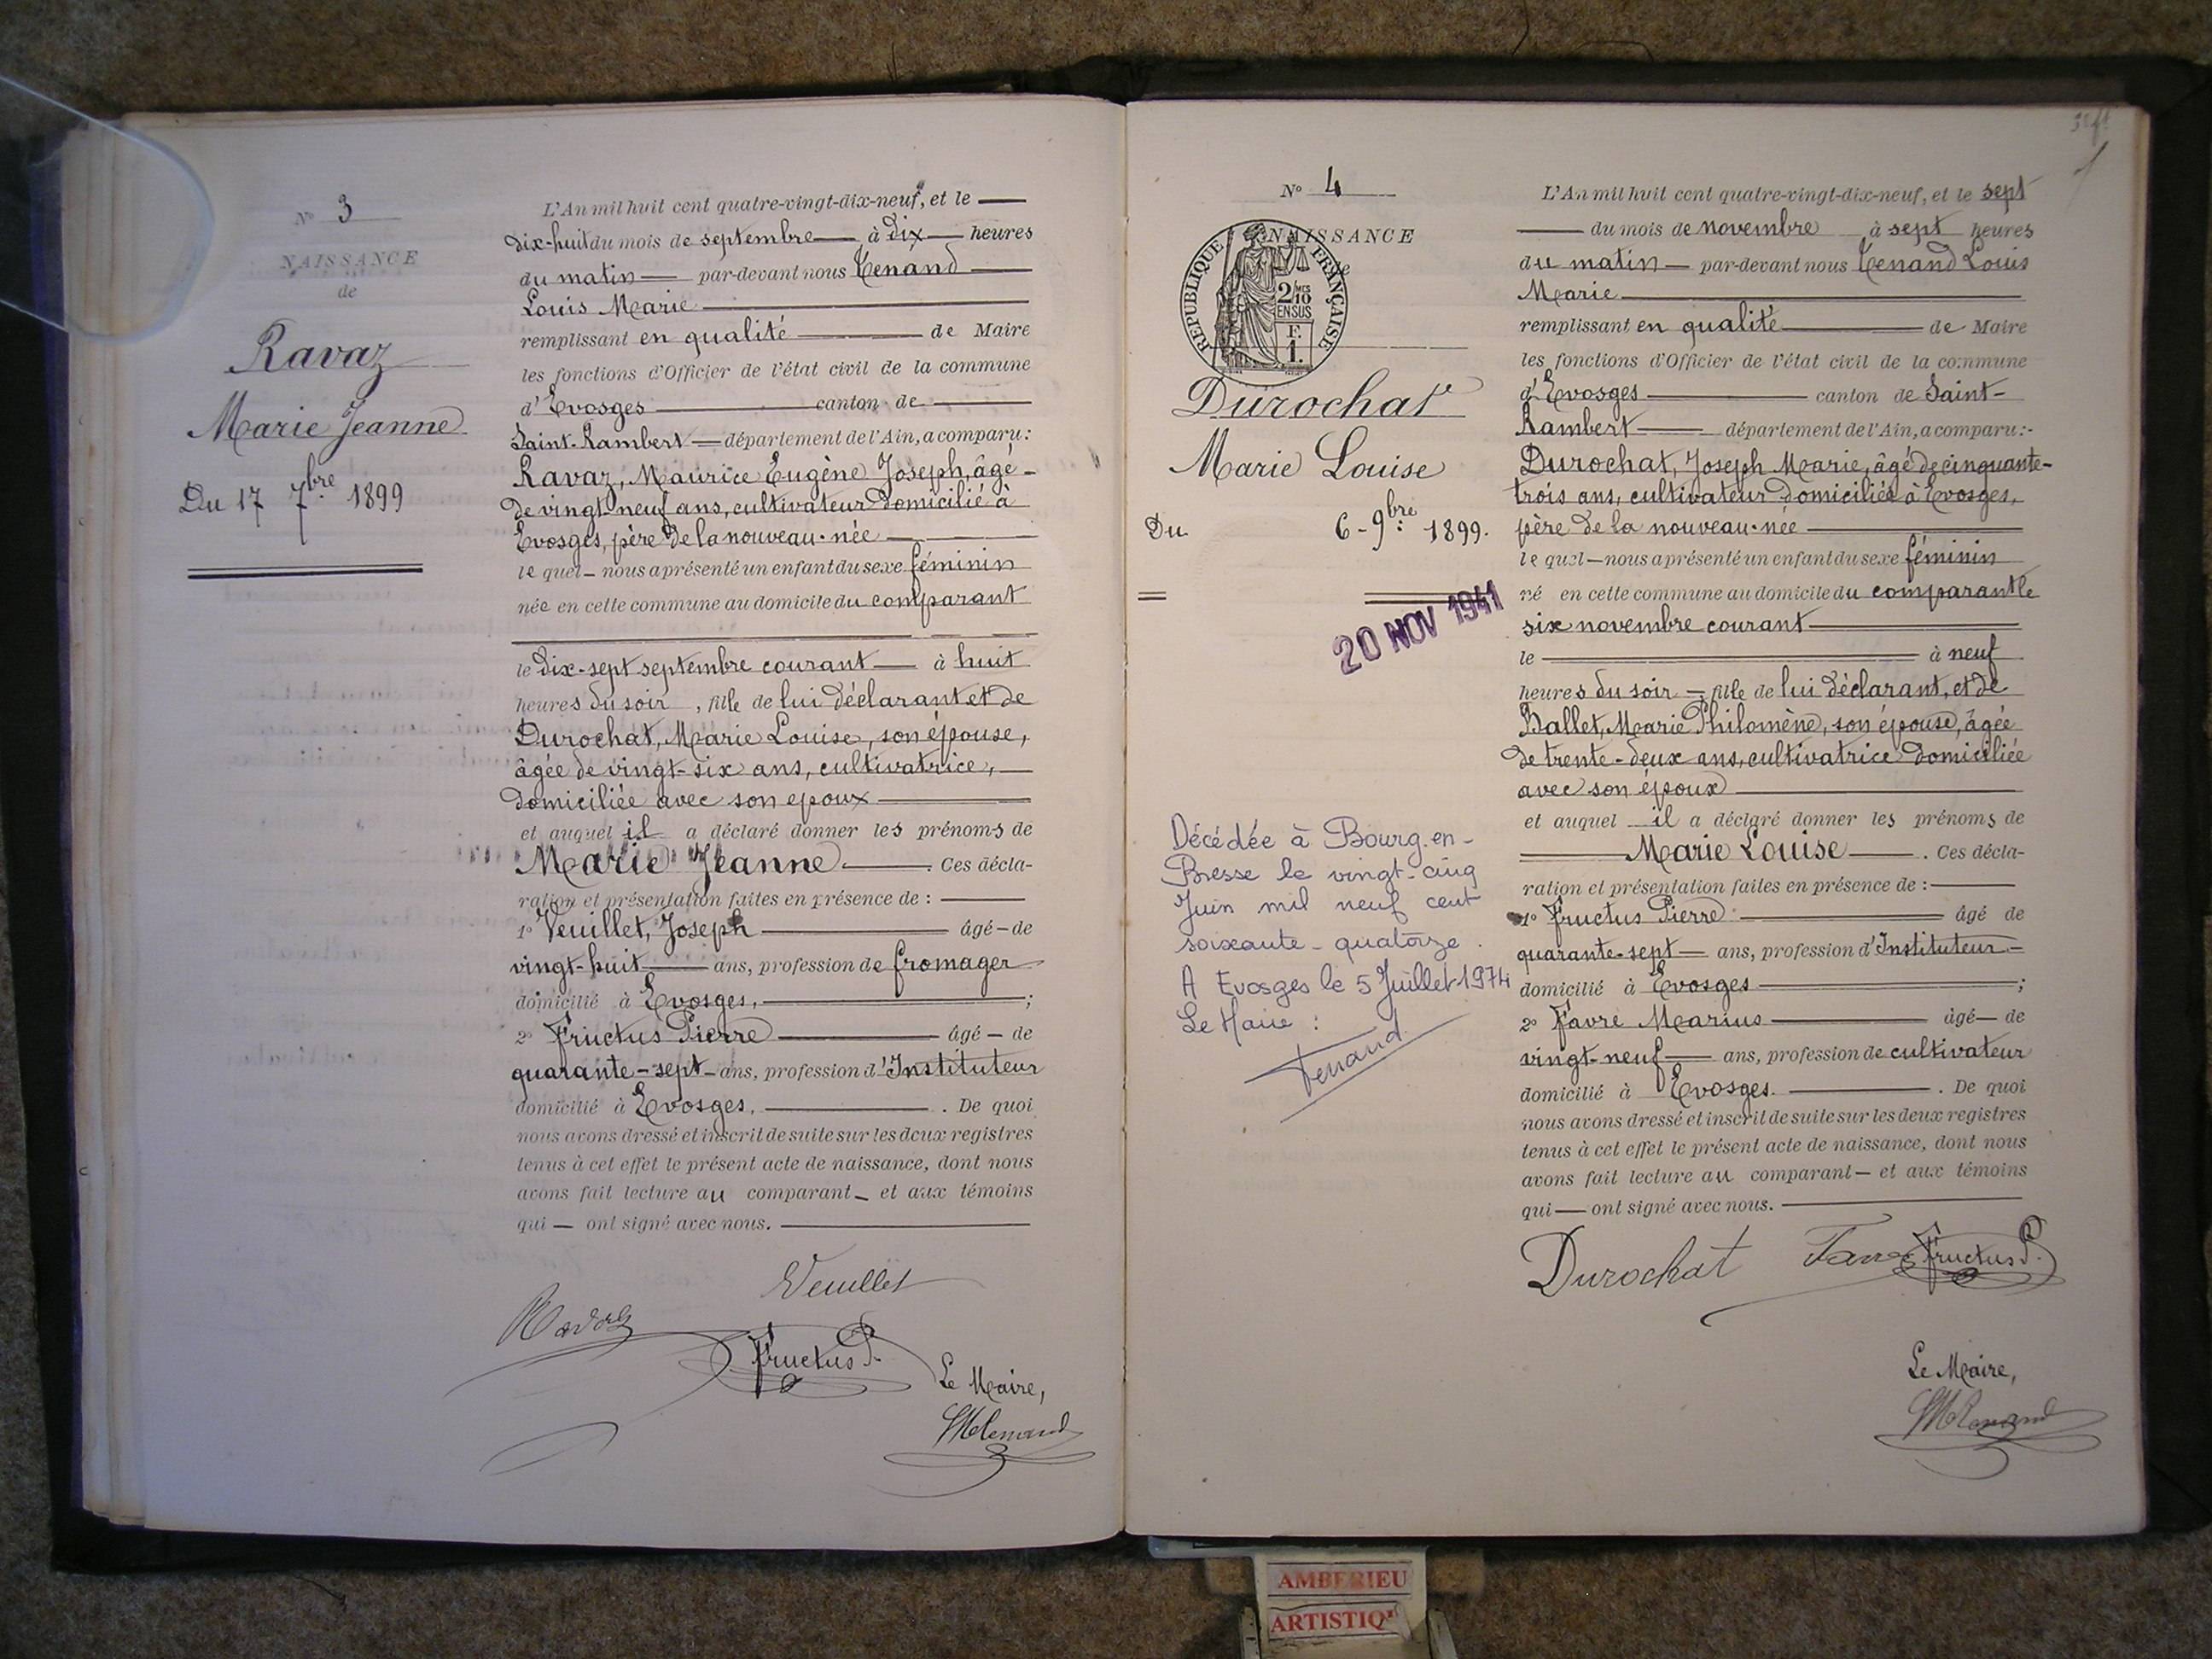 N° 3
NAISSANCE
de
Ravaz
Marie Jeanne
Du 17 7bre 1899
L'An mil huit cent quatre-vingt-dix-neuf, et le
dix-huit du mois de septembre à dix heures
du matin par-devant nous Tenand
Louis Marie
remplissant en qualité de Maire
les fonctions d'Officier de l'état civil de la commune
d'Evosges canton de
Saint-Rambert département de l'Ain, a comparu :
Ravaz, Maurice Eugène Joseph, âgé
de vingt-neuf ans, cultivateur domicilié à
Evosges, père de la nouveau-née
le quel nous a présenté un enfant du sexe féminin
née en cette commune au domicile du comparant
le dix-sept septembre courant à huit
heures du soir, fille de lui déclarant et de
Durochat, Marie Louise, son épouse,
âgée de vingt-six ans, cultivatrice,
domiciliée avec son epoux
et auquel il a déclaré donner les prénoms de
Marie Jeanne. Ces décla-
ration et présentation faites en présence de :
1° Veuillet, Joseph âgé de
vingt-huit ans, profession de fromager
domicilié à Evosges, ;
2° Fructus Pierre âgé de
quarante-sept ans, profession d'Instituteur
domicilié à Evosges. . De quoi
nous avons dressé et inscrit de suite sur les deux registres
tenus à cet effet le présent acte de naissance, dont nous
avons fait lecture au comparant et aux témoins
qui ont signé avec nous.
Veuillet
Ravaz
Fructus P.
Le Maire,
LMTenand
N° 4
NAISSANCE
REPUBLIQUE FRANÇAISE
2/10 MES
EN SUS
F.
1.
Durochat
Marie Louise
Du 6-9bre 1899.
20 NOV 1941
Décédée à Bourg-en-
Bresse le vingt-cinq
Juin mil neuf cent
soixante-quatorze.
A Evosges le 5 Juillet 1974
Le Maire :
Tenand
L'An mil huit cent quatre-vingt-dix-neuf, et le sept
du mois de novembre à sept heures
du matin par-devant nous Tenand Louis
Marie
remplissant en qualité de Maire
les fonctions d'Officier de l'état civil de la commune
d'Evosges canton de Saint-
Rambert département de l'Ain, a comparu :
Durochat, Joseph Marie, âgé de cinquante-
trois ans, cultivateur domiciliée à Evosges,
père de la nouveau-née
le quel nous a présenté un enfant du sexe féminin
né en cette commune au domicile du comparant le
six novembre courant
le à neuf
heures du soir, fille de lui déclarant, et de
Ballet, Marie Philomène, son épouse, âgée
de trente-deux ans, cultivatrice domiciliée
avec son époux
et auquel il a déclaré donner les prénoms de
Marie Louise. Ces décla-
ration et présentation faites en présence de :
1° Fructus Pierre âgé de
quarante-sept ans, profession d'Instituteur
domicilié à Evosges ;
2° Favre Marius âgé de
vingt-neuf ans, profession de cultivateur
domicilié à Evosges. . De quoi
nous avons dressé et inscrit de suite sur les deux registres
tenus à cet effet le présent acte de naissance, dont nous
avons fait lecture au comparant et aux témoins
qui ont signé avec nous.
Durochat Favre Fructus P.
Le Maire,
LMTenand
AMBERIEU
ARTISTIQ